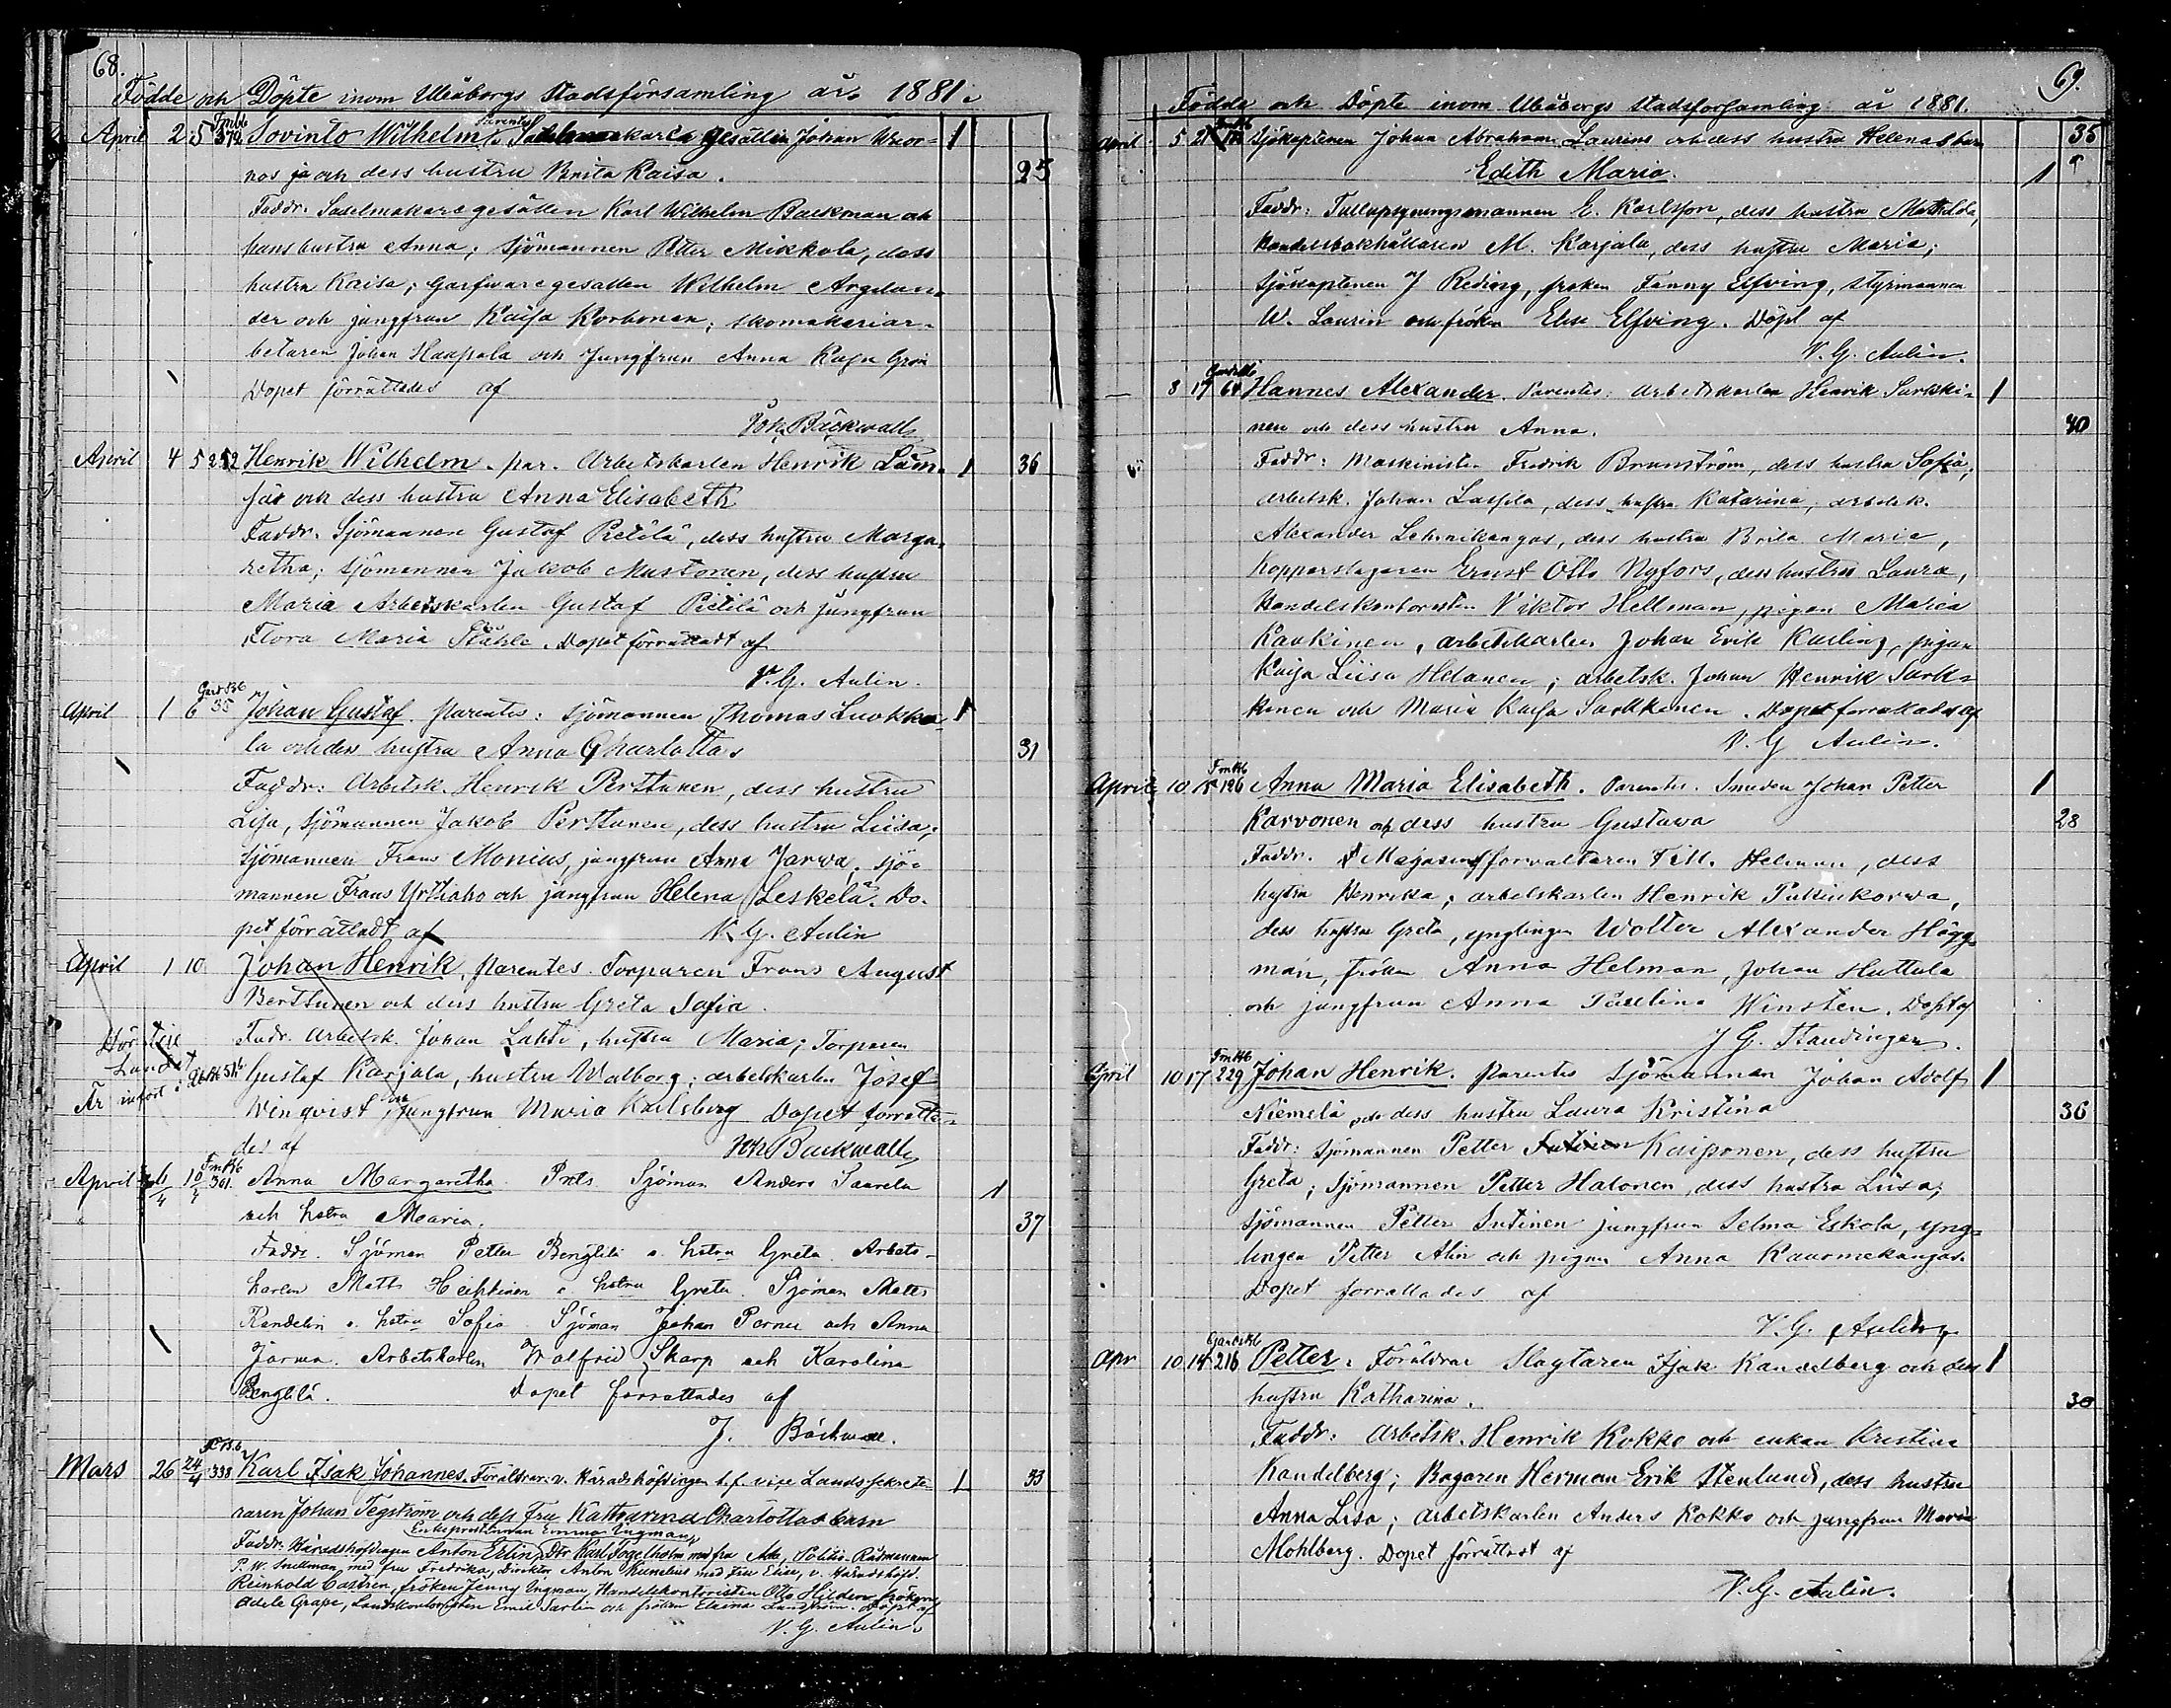 68.
Födde och Döpte inom Uleåborgs Stadsförsamling år 1881.
April 2 5 Fm Kb 372 Sovinto Wilhelm. Parentes Sadelmakaregesällen Johan Wuor-
nos ja och dess hustru Brita Kaisa. 1 25
Faddr. Sadelmakaregesällen Karl Wilhelm Backman och
hans hustru Anna; Sjömannen Petter Mikkola, dess
hustru Kaisa; Garfvaregesällen Wilhelm Argelan-
der och jungfrun Kaisa Korhonen; skomakeriar-
betaren Johan Haapala och Jungfrun Anna Kajsa Grön
Dopet förrättades af
Joh. Bäckwall
April 4 5 252 Henrik Wilhelm. par. Arbetskarlen Henrik Läm- 1 36
sär och dess hustru Anna Elisabeth
Faddr. Sjömannen Gustaf Pietilä, dess hustru Marga-
retha; Sjömannen Jakob Mustonen, dess hustru
Maria Arbetskarlen Gustaf Pietilä och jungfrun
Flora Maria Ståhle. Dopet förrättadt af
V. G. Aulin.
April 1 6 35 Johan Gustaf. Parentes: Sjömannen Thomas Luokka- 1
la och dess hustru Anna Charlotta. 31
Faddr: Arbetsk. Henrik Perttunen, dess hustru
Lisa, Sjömannen Jakob Perttunen, dess hustru Liisa;
Sjömannen Frans Monius, jungfrun Anna Jarva; sjö-
mannen Frans Yrttiaho och jungfrun Helena Leskelä. Do-
pet förrättadt af V. G. Aulin
April 1 10 Johan Henrik. Parentes. Torparen Frans August
Berttunen och dess hustru Greta Sofia.
Hör till Fadr. Arbetsk. Johan Lahti, hustru Maria; Torparen
Landet Gustaf Karjala, hustru Walborg; arbetskarlen Josef
Är infört i Winqvist och jungfrun Maria Karlsberg Dopet förrätta-
des af Joh Bäckwall
April 6/4 10/4 Fm Kb 301 Anna Margaretha Prnts Sjöman Anders Saarela 1
och hstru Maria. 37
Faddr. Sjöman Petter Bengtlä o. hstru Greta. Arbets-
karlen Matts Heikkinen o hstru Greta. Sjöman Matts
Randelin o. hstru Sofia Sjöman Johan Pornu och Anna
Jarma. Arbetskarlen Walfrid Skarp och Karolina
Bengtlä. Dopet förrättades af
J. Bäckwall.
Mars 26 24/4 338 Karl Isak Johannes. Föräldrar: v. Häradshöfdingen t.f. vice Landssekrete- 1 33
raren Johan Tegström och dess fru Katharina Charlottas barn
Enkeprostinnan Emma Ingman,
Faddr: Häradshöfdingen Anton Ertin, Dtr Karl Fogelholm med fru Ada, Politie-Rådmannen
P. W. Snellman med fru Fredrika, Direktör Anton Kunelius med fru Elise, v. Häradshöfd.
Reinhold Castrén, fröken Jenny Ingman, Handelskontoristen Otto Hildén, fröken
Adele Grape, Landskontoristen Emil Sarlin och fröken Elaina Lundström. Döpt af
V. G. Aulin.
69.
Födde och Döpte inom Uleåborgs stadsförsamling år 1881.
April 5 21 Sjökaptenen Johan Abraham Laurins och dess hustru Helenas barn 35
Edith Maria. 1
Faddr: Tulluppsyningsmannen E. Karlsson, dess hustru Mathilda,
Handelsbokhållaren M. Karjala, dess hustru Maria;
Sjökaptenen J Reding, fröken Fanny Elfving, styrmannen
W. Laurin och fröken Elise Elfving. Döpt af
V. G. Aulin.
— 8 17 64 Hannes Alexander. Parentes: Arbetskarlen Henrik Sarkki- 1
nen och dess hustru Anna. 40
Faddr: Maskinisten Fredrik Brunström, dess hustru Sofia;
arbetsk. Johan Lassila, dess hustru Katarina; arbetsk.
Alexander Lehmikangas, dess hustru Brita Maria,
Kopparslagaren Ernst Otto Nyfors, dess hustru Laura,
Handelskontoristen Viktor Hellman, pigan Maria
Kaukinen, arbetskarlen Johan Erik Karling, pigan
Kaisa Liisa Helanen; arbetsk. Johan Henrik Sark-
kinen och Maria Kajsa Sarkkinen. Dopet förrättades af
V. G Aulin.
April 10 15 Fm Kb 196 Anna Maria Elisabeth. Parentes. Smeden Johan Petter 1
Karvonen och dess hustru Gustava 28
Faddr. Magasinsförvaltaren Helman, dess
hustru Henrika; arbetskarlen Henrik Pukinkorva,
dess hustru Greta, ynglingen Wolter Alexander Hägg-
man, fröken Anna Helman, Johan Huttula
och jungfrun Anna Paulina Winsten. Döpt af
J G. Standinger.
April 10 17 Fm Kb 229 Johan Henrik. Parentes Sjömannen Johan Adolf 1
Niemelä och dess hustru Laura Kristina 36
Faddr: Sjömannen Petter Kaiponen, dess hustru
Greta; Sjömannen Petter Halonen, dess hustru Liisa;
Sjömannen Petter Intinen jungfrun Selma Eskola, yng-
lingen Petter Alin och pigan Anna Kaarmekangas.
Dopet förrättades af
V. G. Aulin
Apr 10 14 216 Petter. Föräldrar Slagtaren Isak Kandelberg och dess 1
hustru Katharina. 30
Faddr: Arbetsk. Henrik Kokko och enkan Kristina
Kandelberg; Bagaren Herman Erik Stenlund, dess hustru
Anna Lisa; arbetskarlen Anders Kokko och jungfrun Maria
Mohlberg. Dopet förrättadt af
V. G. Aulin.